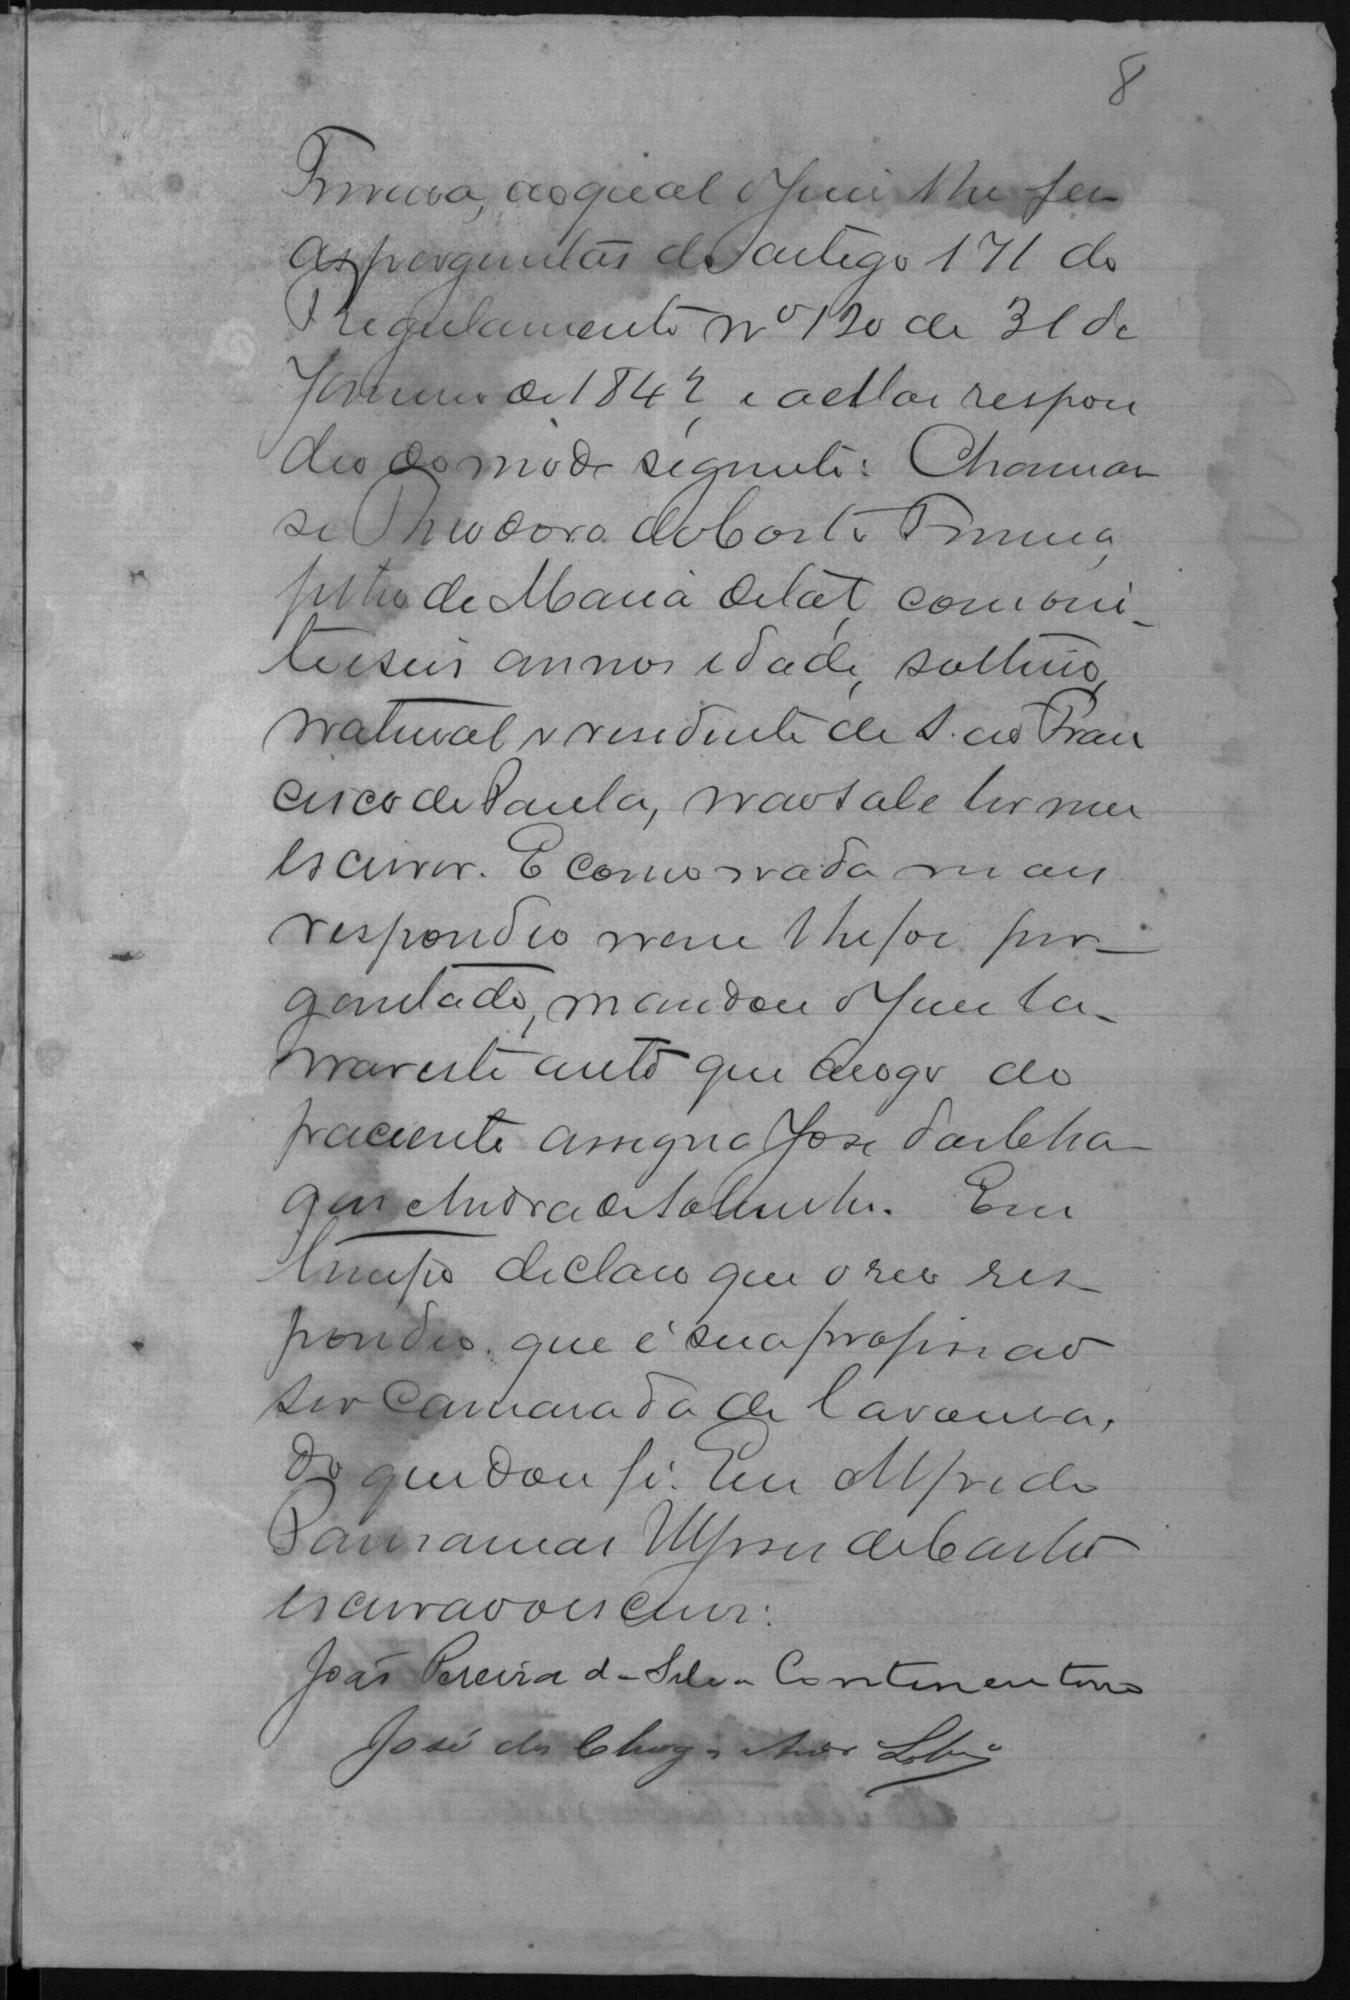 8
Ferreira, ao qual o Juiz lhe fez
as perguntas do artigo 171 do
Regulamento nº 120 de 31 de
Janeiro de 1842, e a ellas respon
deo do modo seguinte: Chamar
se Theodoro da Costa Ferreira,
filho de Maria de tal, com vin-
te e seis annos idade, solteiro,
natural e residente de S. ão Fran
cisco de Paula, não sabe ler nem
escrever. E como nada mais
respondeo nem lhe foi per-
guntado, mandou o Juiz la-
vrar este auto que a rogo do
paciente assigna José das Cha-
gas Andrade Sobrinho. Em
tempo declaro que o reo res-
pondeo que é sua profissão
ser Camarada de lavoura,
do que dou fé. Eu Alfredo
Ulysses de Castro
escrivão o escrevi:
João Pereira da Silva Continentino
José das Chagas Andr Sobrº